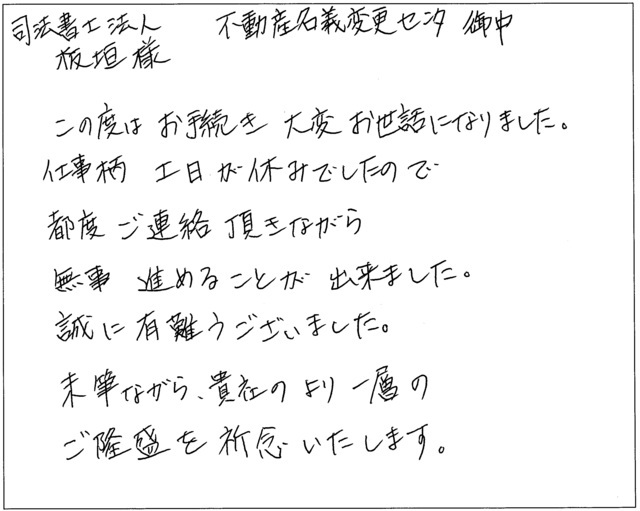 司法書士法人 不動産名義変更センタ 御中
板垣様
この度は お手続き 大変 お世話になりました。
仕事柄 土日が休みでしたので
都度 ご連絡 頂きながら
無事 進めることが 出来ました。
誠に有難うございました。
末筆ながら、貴社のより一層の
ご隆盛を祈念いたします。